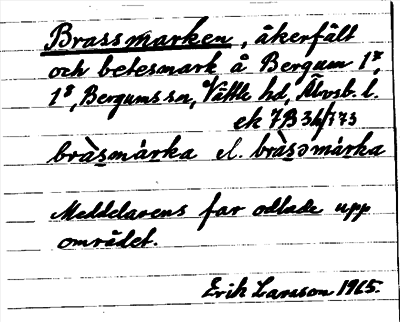 Brassmarken, åkerfält
och betesmark å Bergum 1⁷,
1⁸, Bergums sn, Vättle hd, Älvsb. l.
ek 7B 3h/773
bràs̱màrka el. bràs̱əmàrka
Meddelarens far odlade upp
området.
Erik Larsson 1965.